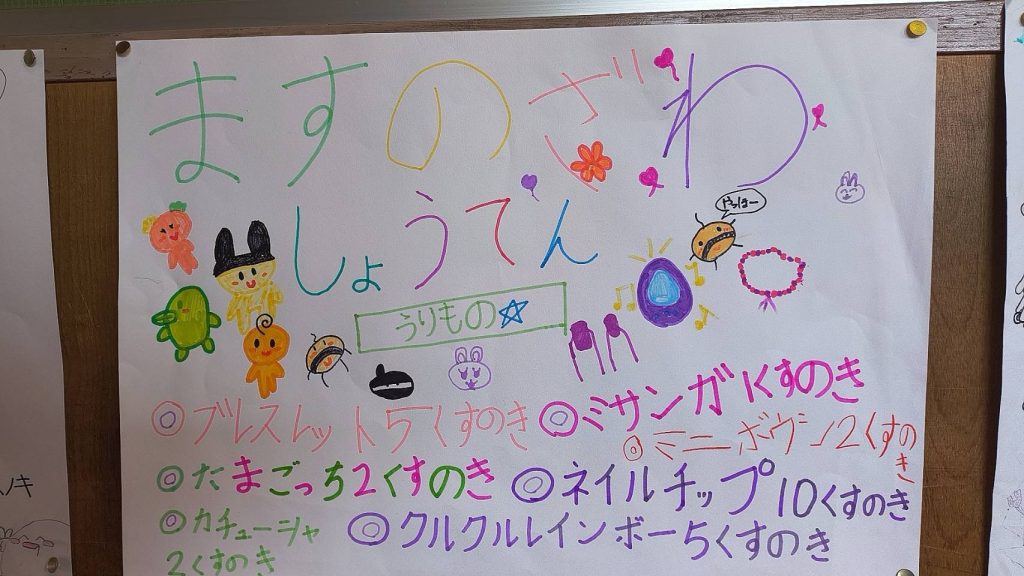 ますのざわ
しょうてん
やっほー
うりもの☆
◎ブレスレット5くすのき
◎ミサンガ1くすのき
◎ミニボウシ2くすのき
◎たまごっち2くすのき
◎ネイルチップ10くすのき
◎カチューシャ
2くすのき
◎クルクルレインボー5くすのき
ノキ